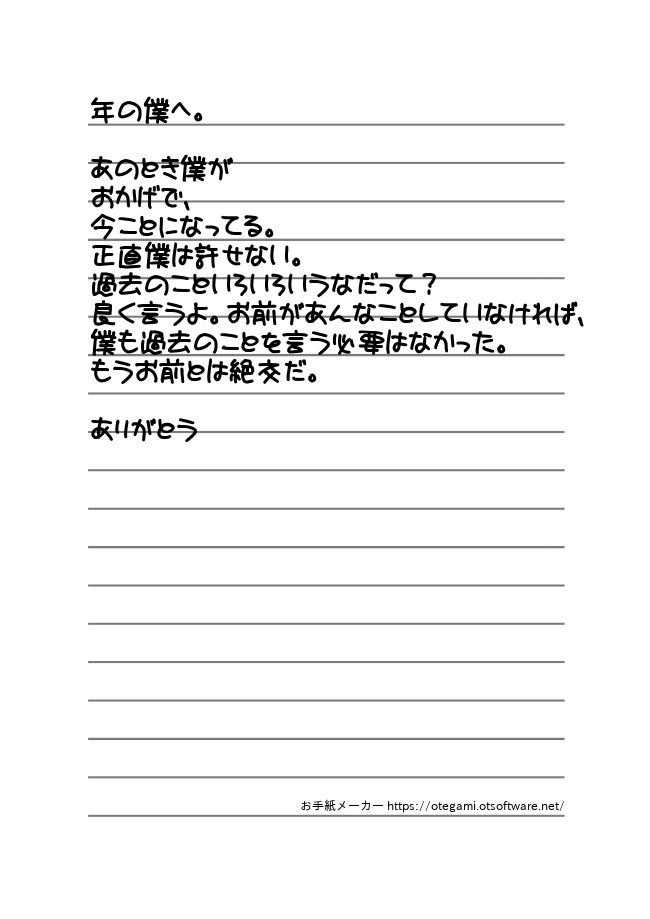 年の僕へ。
あのとき僕が
おかげで、
今ことになってる。
正直僕は許せない。
過去のこといろいろいうなだって？
良く言うよ。お前があんなことしていなければ、
僕も過去のことを言う必要はなかった。
もうお前とは絶交だ。
ありがとう
お手紙メーカー https://otegami.otsoftware.net/